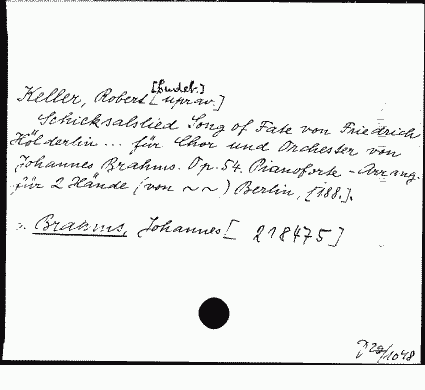 [Hudeb.]
Keller, Robert [uprav.]
Schicksalslied Song of Fate von Friedrich
Hölderlin ... für Chor und Orchester von
Johannes Brahms. Op. 54. Pianoforte-Arrang.
für 2 Hände (von ~ ~) Berlin, [188.].
Brahms, Johannes [ 218475 ]
/1048